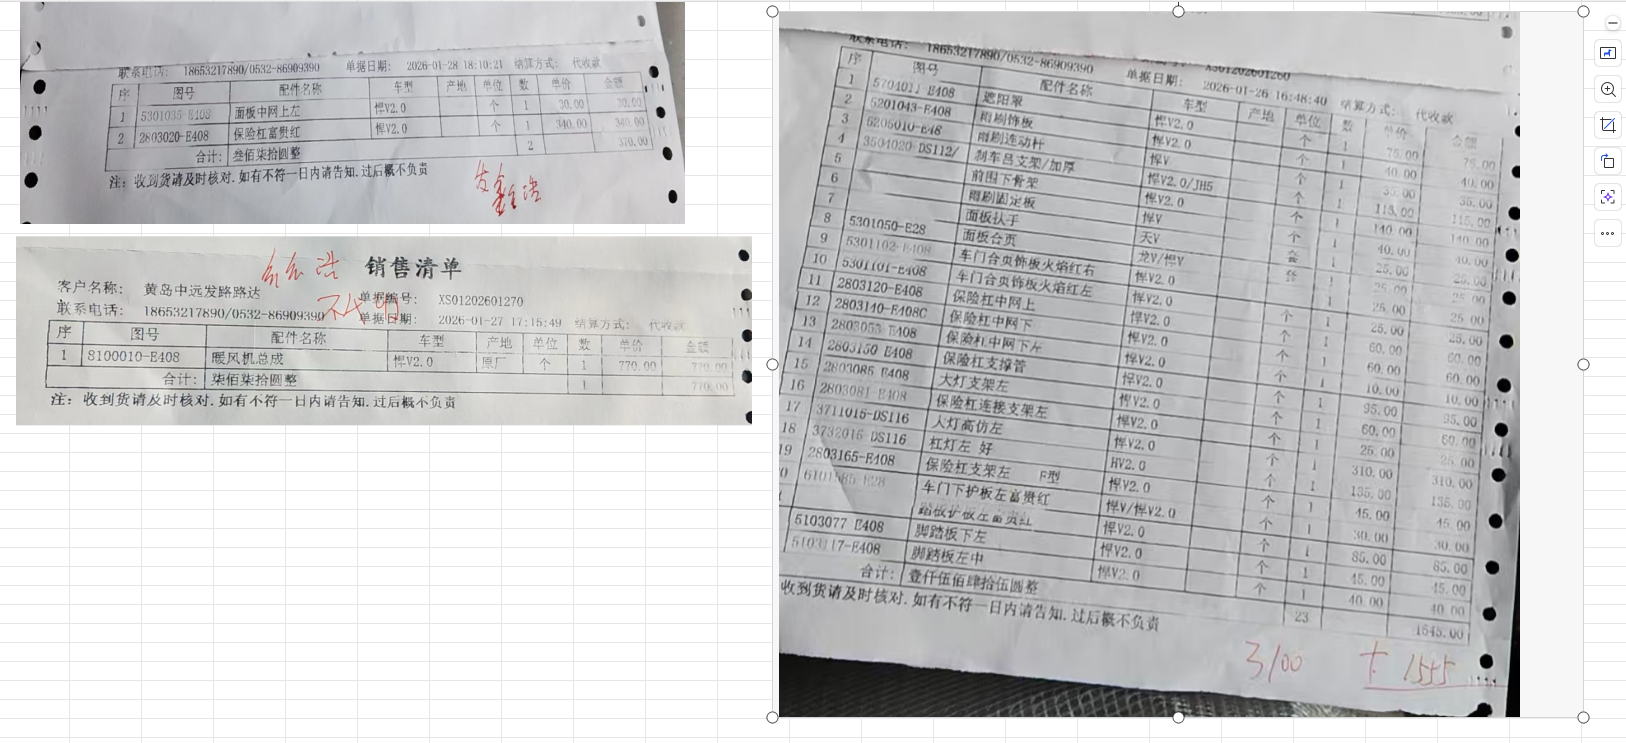 联系电话: 18653217890/0532-86909390 单据日期: 2026-01-28 18:10:21 结算方式: 代收款
序 图号 配件名称 车型 产地 单位 数 单价 金额
1 5301035-E408 面板中网上左 悍V2.0 个 1 30.00 30.00
2 2803020-E408 保险杠富贵红 悍V2.0 个 1 340.00 340.00
合计: 叁佰柒拾圆整 2 370.00
注: 收到货请及时核对.如有不符一日内请告知.过后概不负责
销售清单
客户名称: 黄岛中远发路路达 单据编号: XS01202601270
联系电话: 18653217890/0532-86909390 单据日期: 2026-01-27 17:15:49 结算方式: 代收款
序 图号 配件名称 车型 产地 单位 数 单价 金额
1 8100010-E408 暖风机总成 悍V2.0 原厂 个 1 770.00 770.00
合计: 柒佰柒拾圆整 1 770.00
注: 收到货请及时核对.如有不符一日内请告知.过后概不负责
联系电话: 18653217890/0532-86909390 单据日期: 2026-01-26 16:48:40 结算方式: 代收款
序 图号 配件名称 车型 产地 单位 数 单价 金额
1 5704011 E408 遮阳罩 悍V2.0 个 1 75.00 75.00
2 5201043-E408 雨刷饰板 悍V2.0 个 1 40.00 40.00
3 5205010-E48 雨刷连动杆 悍V 个 1 35.00 35.00
4 3504020-DS112/ 刹车吕支架/加厚 悍V2.0/JH5 个 1 115.00 115.00
5 前围下骨架 悍V2.0 个 1 140.00 140.00
6 雨刷固定板 悍V 个 40.00 40.00
7 面板扶手 天V 25.00 25.00
8 5301050-E28 面板合页 龙V/悍V 套 25.00 25.00
9 5301102-E408 车门合页饰板火焰红右 悍V2.0 个 1 25.00 25.00
10 5301101-E408 车门合页饰板火焰红左 悍V2.0 个 1 25.00 25.00
11 2803120-E408 保险杠中网上 悍V2.0 个 1 60.00 60.00
12 2803140-E408C 保险杠中网下 悍V2.0 个 1 60.00 60.00
13 2803053 E408 保险杠中网下左 悍V2.0 个 1 10.00 10.00
14 2803150 E408 保险杠支撑管 悍V2.0 个 1 95.00 95.00
15 2803085 E408 大灯支架左 悍V2.0 个 1 60.00 60.00
16 2803081 E408 保险杠连接支架左 悍V2.0 个 1 25.00 25.00
17 3711015-DS116 大灯高仿左 HV2.0 个 1 310.00 310.00
18 3732015 DS116 杠灯左 好 悍V2.0 个 1 135.00 135.00
19 2803165-E408 保险杠支架左 F型 悍V/悍V2.0 个 1 45.00 45.00
6101585 E28 车门下护板左富贵红 悍V2.0 个 1 30.00 30.00
踏板护板左富贵红 悍V2.0 个 1 85.00 85.00
5103077 E408 脚踏板下左 悍V2.0 个 1 45.00 45.00
5103117-E408 脚踏板左中 个 1 40.00 40.00
合计: 壹仟伍佰肆拾伍圆整 23 1545.00
收到货请及时核对.如有不符一日内请告知.过后概不负责
3100 + 1555